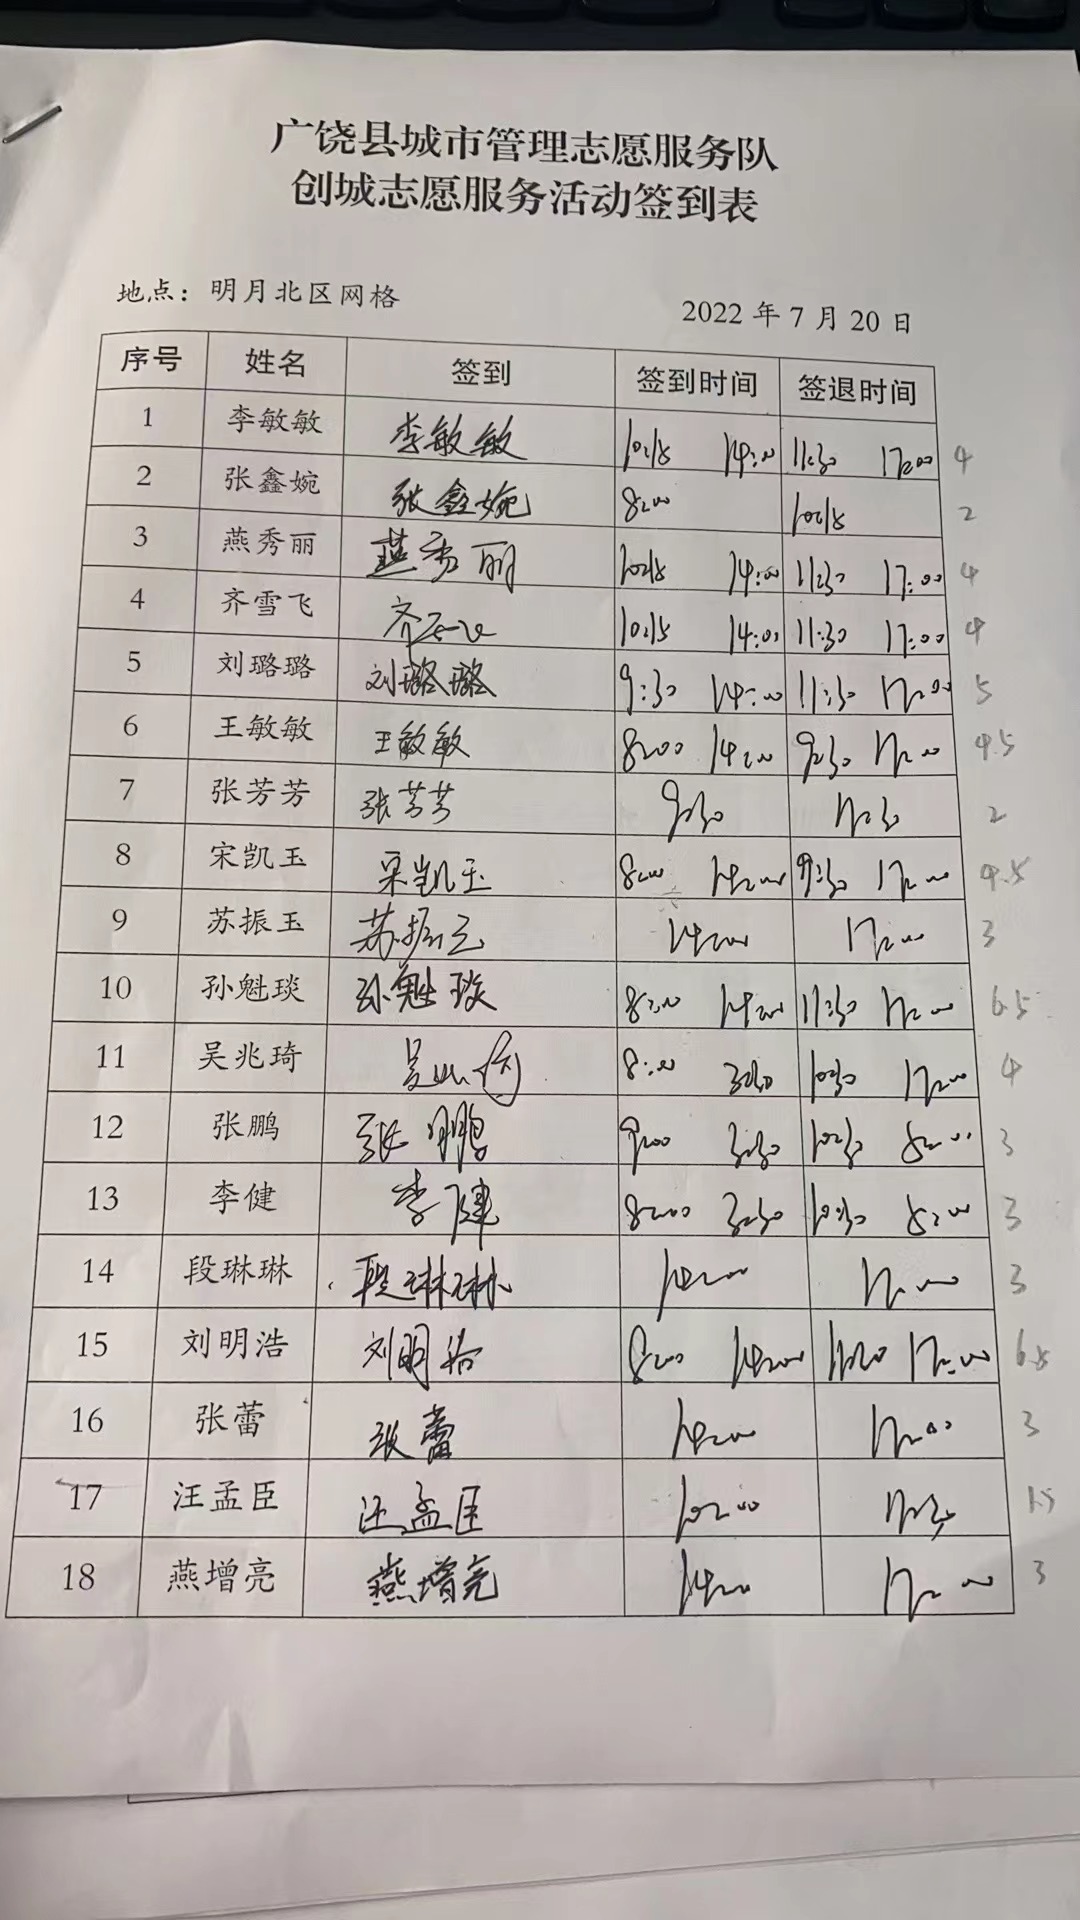 广饶县城市管理志愿服务队
创城志愿服务活动签到表
地点：明月北区网格 2022 年 7 月 20 日
序号 姓名 签到 签到时间 签退时间
1 李敏敏 李敏敏 10:15 14:00 11:30 17:00 4
2 张鑫婉 张鑫婉 8:00 10:15 2
3 燕秀丽 燕秀丽 10:15 14:00 11:30 17:00 4
4 齐雪飞 齐 10:15 14:00 11:30 17:00 4
5 刘璐璐 刘璐璐 9:30 14:00 11:30 17:00 5
6 王敏敏 王敏敏 8:00 14:00 9:30 17:00 4.5
7 张芳芳 张芳芳 9:30 11:30 2
8 宋凯玉 宋凯玉 8:00 14:00 9:30 17:00 4.5
9 苏振玉 苏振玉 14:00 17:00 3
10 孙魁琰 孙魁琰 8:00 14:00 11:30 17:00 6.5
11 吴兆琦 吴 8:00 3:30 10:30 17:00 4
12 张鹏 张鹏 9:00 3:30 10:30 5:00 3
13 李健 李健 8:00 3:30 10:30 5:00 3
14 段琳琳 段琳琳 14:00 17:00 3
15 刘明浩 刘明浩 8:00 14:00 17:00 6.5
16 张蕾 张蕾 14:00 17:00 3
17 汪孟臣 汪孟臣 10:00 11:30 1.5
18 燕增亮 燕增亮 14:00 17:00 3